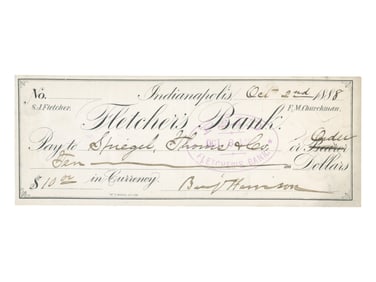 No. Indianapolis Oct 2nd 1888
S.J. Fletcher. F.M. Churchman.
Fletcher's Bank.
Pay to Spiegel, Thoms & Co. or Bearer Order
Ten Dollars
FLETCHER'S BANK
$10 00 in Currency. Benj Harrison